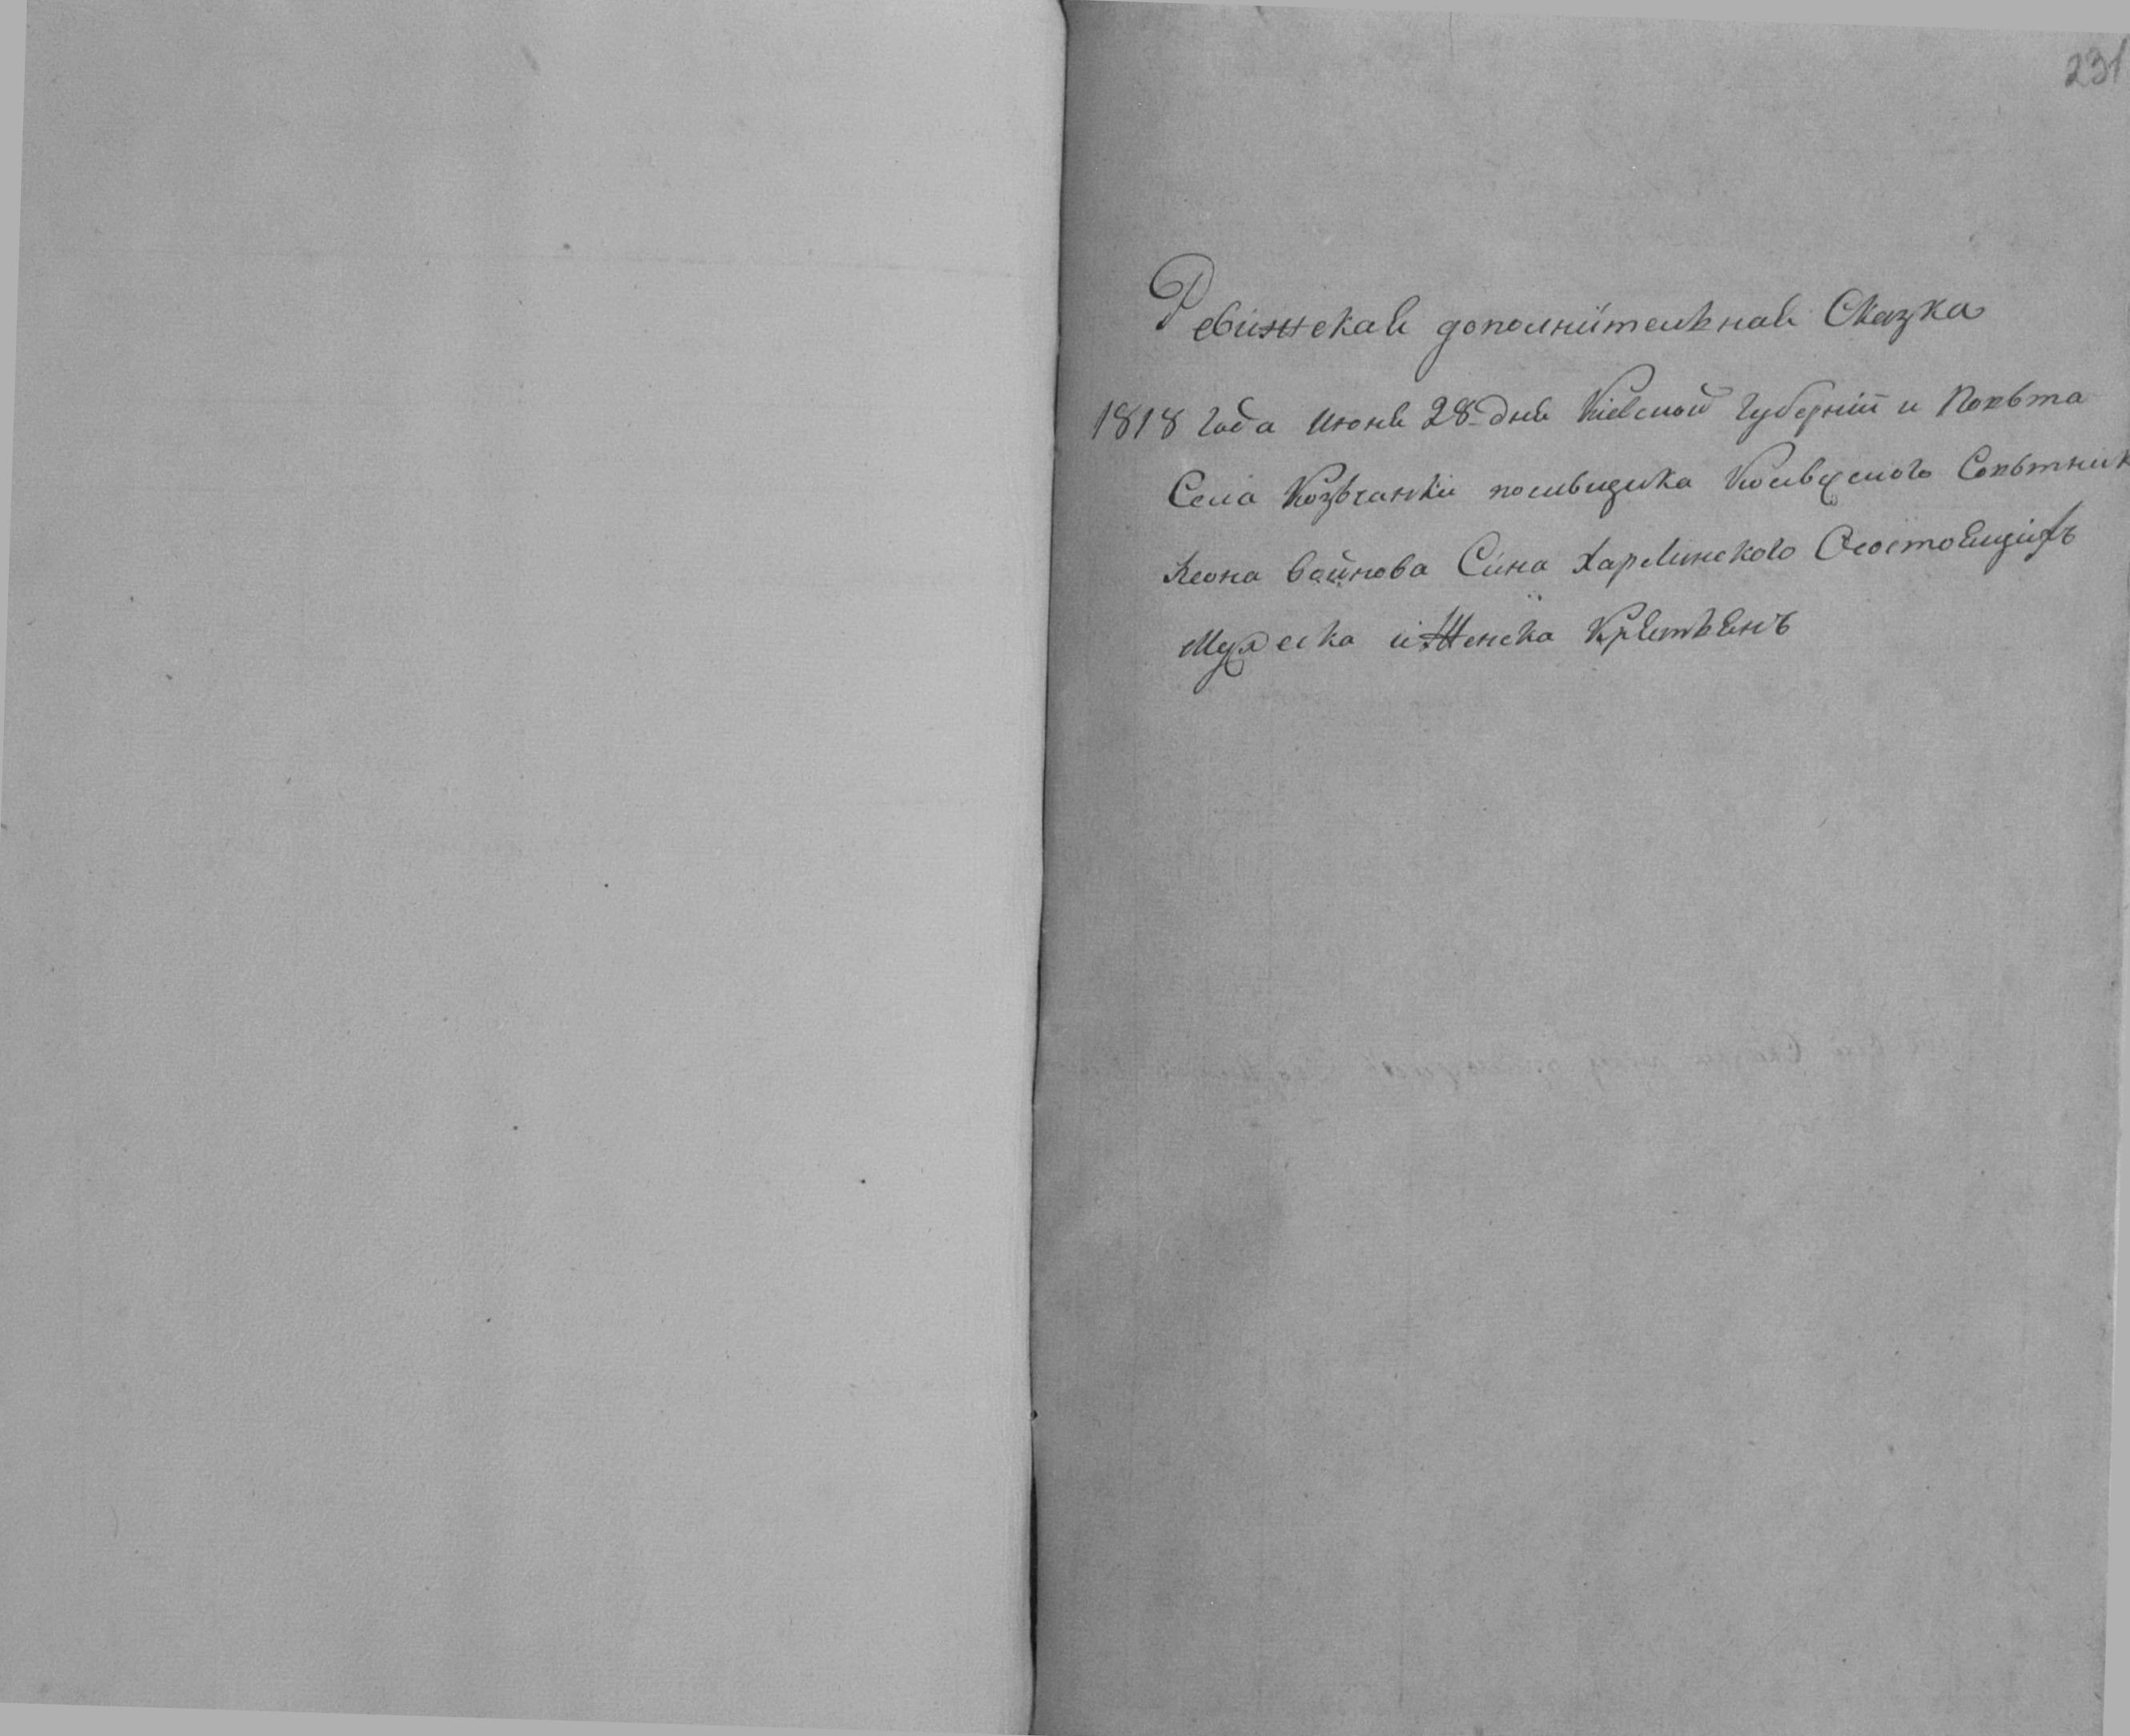 231
Ревижская дополнителная Сказка
1818 года июня 28 дня Киевской Губерниї и Повѣта
Села помѣщика Совѣтник
Леона Войнова Сина Харлинского О состоящихъ
Мужеска и Женска Крестьянъ